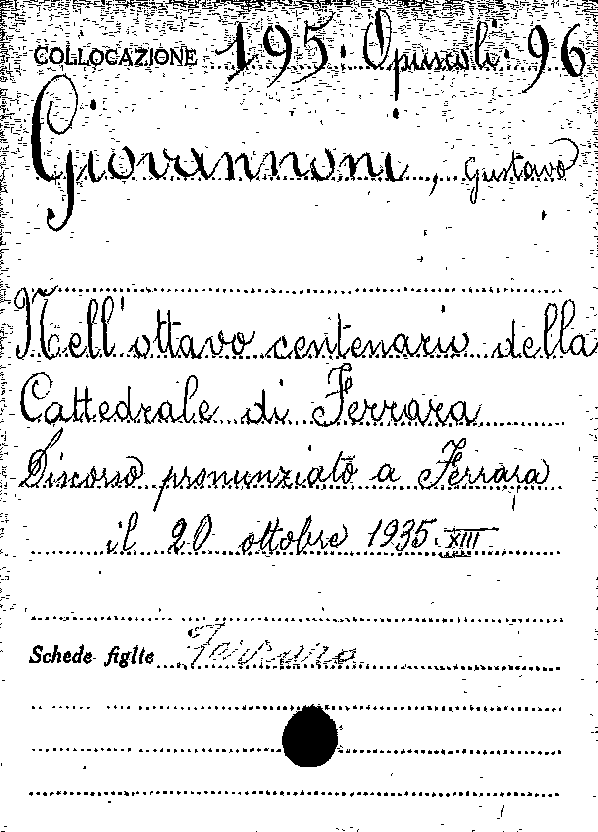 COLLOCAZIONE 195. Opuscoli. 96
Giovannoni, Gustavo
Nell'ottavo centenario della
Cattedrale di Ferrara
Discorso pronunziato a Ferrara
il 20 ottobre 1935. XIII
Schede figlte Ferrara